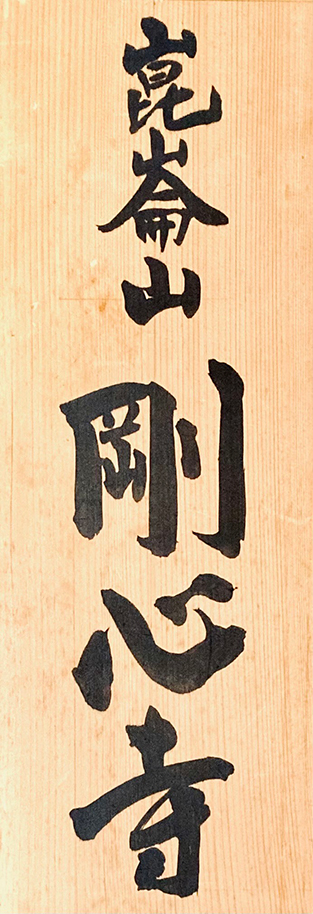 崑崙山 剛心寺